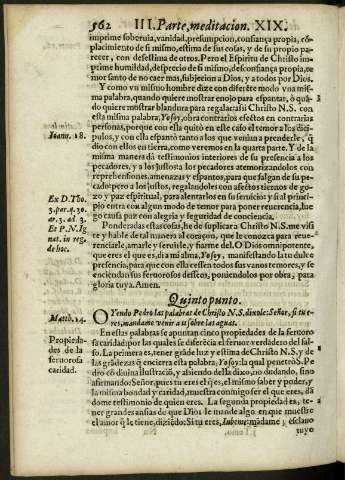 562 III. Parte, meditacion. XIX.
imprime soberuia, vanidad, presumpcion, confiança propia, cō-
placimiento de si mismo, estima de sus cosas, y de su propio pa-
recer, con desestima de otros. Pero el Espiritu de Christo im-
prime humildad, desprecio de si mismo, desconfiança propia, te-
mor santo de no caer mas, subjecion a Dios, y a todos por Dios.
Y como vn mismo hombre dize con diferēte modo vna mis-
ma palabra, quando quiere mostrar enojo para espantar, ò quā-
do quiere mostrar blandura para regalar: assi Christo N. S. con
esta misma palabra, Yo soy, obra contrarios efectos en contrarias
personas, porque con esta quitò en este caso el temor a los dici-
Ioann. 18. pulos, y con esta espantò tanto a los que venian a prenderle, q̃
dio con ellos en tierra, como veremos en la quarta parte. Y de la
misma manera dà testimonios interiores de su presencia a los
pecadores, y a los justos a los pecadores atemorizandolos con
reprehensiones, amenazas y espantos, para que salgan de su pe-
cado: pero a los justos, regalandoles con afectos tiernos de go-
Ex D. Tho. zo y paz espiritual, para alentarlos en su seruicio: y si al princi-
3. par. q. 30. pio entra con algun modo de temor para poner reuerencia, lue-
ar. 3. ad. 3. go causa paz con alegria y seguridad de conciencia.
Et P. N. Ig- Ponderadas estas cosas, he de suplicar a Christo N. S. me visi-
nat. in reg. te y hable de tal manera al coraçon, que le conozca para reue-
de hoc. renciarle, amarle y seruirle, y fiarme del. O Dios omnipotente,
que eres el que es, di a mi alma, Yo soy, manifestando la tu dulce
presencia, para que con ella cessen todos sus vanos temores, y se
enciendan sus feruorosos desseos, poniendolos por obra, para
gloria tuya. Amen.
Quinto punto.
Matth. 14. OYendo Pedro las palabras de Christo N. S. dixole: Señor, si tu e-
res, mandame venir a ti sobre las aguas.
Propieda- En estas palabras se apuntan cinco propiedades de la feruoro-
des de la sa caridad: por las quales se diferēcia el feruor verdadero del fal-
feruorosa so. La primera es, tener grāde luz y estima de Christo N. S. y de
caridad. las grādezas q̃ encierra esta palabra, Yo soy: la qual penetrò S. Pe-
dro cō diuina ilustraciō, y asiendo della dixo, no dudando, sino
afirmando: Señor, pues tu eres el q̃ es, el mismo saber y poder, y
la misma bondad y caridad, muestra conmigo ser el que eres, dā-
dome testimonio de quien eres. La segunda propiedad es, te-
ner grandes ansias de que Dios le mande algo en que muestre
el amor q̃ le tiene, diziēdo: Si tu eres, Iube me; mādame a esclauo
tuyo